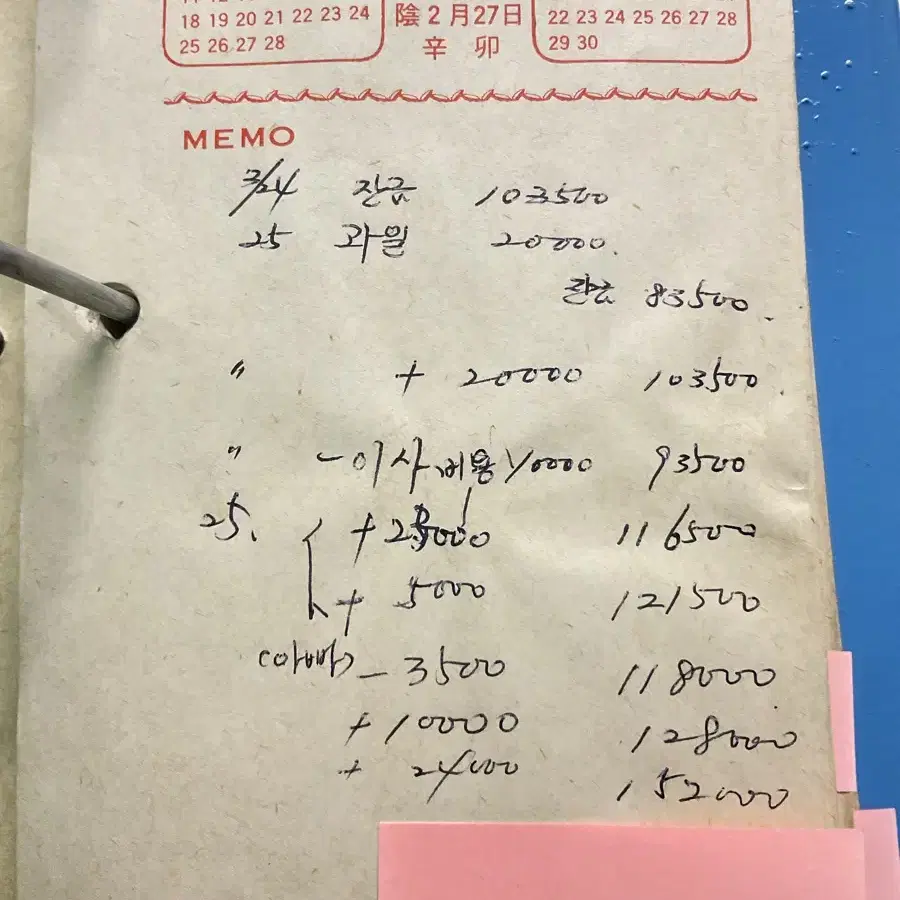 18 19 20 21 22 23 24
25 26 27 28
陰2月27日
辛 卯
22 23 24 25 26 27 28
29 30
MEMO
3/24 잔금 103500
25 과일 20000.
잔금 83500.
〃 + 20000 103500
〃 -이사비용 10000 93500
25. + 23000 116500
+ 5000 121500
(아빠) - 3500 118000
+ 10000 128000
+ 24000 152000